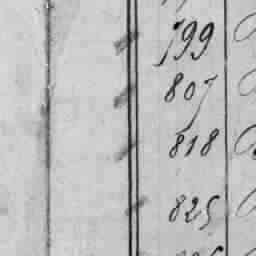 799
807
818
825